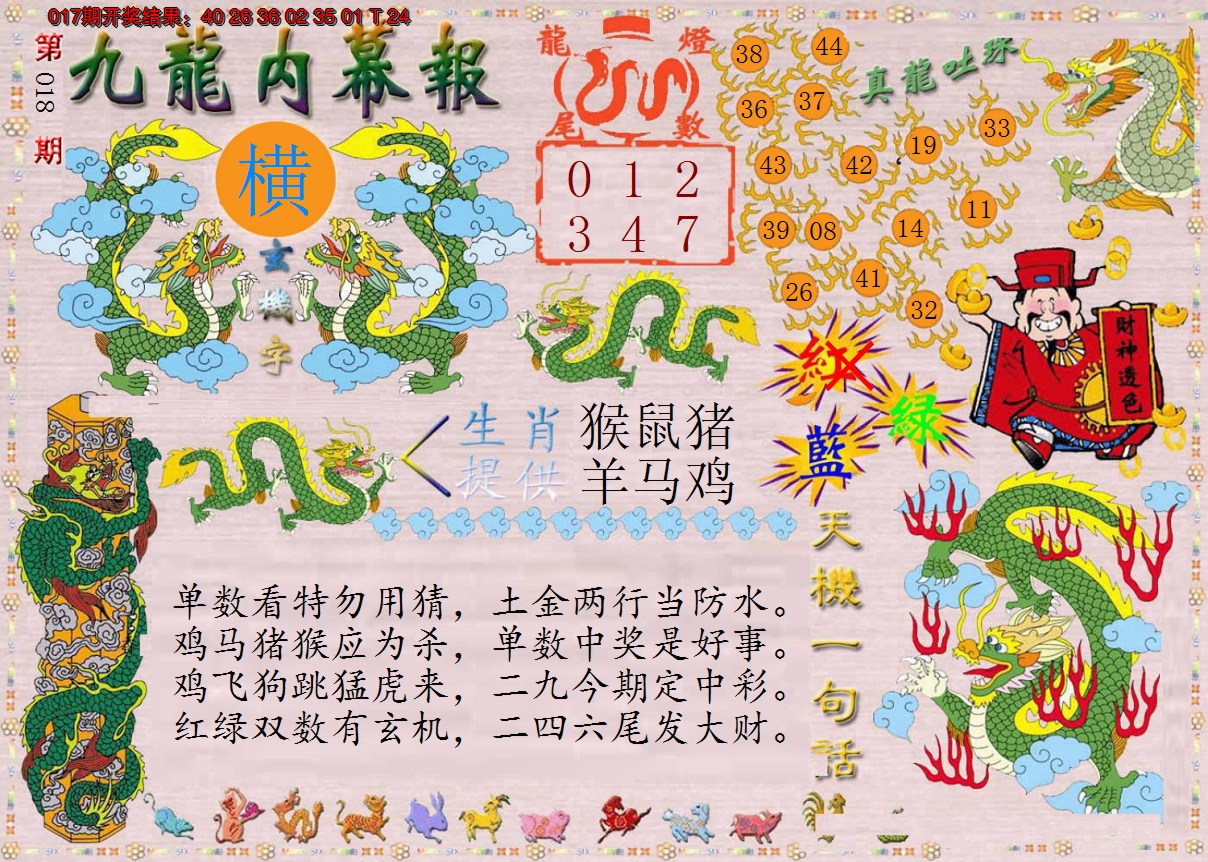 017期开奖结果：40 26 36 02 35 01 T 24
第018期
九龍内幕報
横
玄機字
龍燈尾數
0 1 2
3 4 7
真龍吐珠
38 44
36 37
43 42 19 33
39 08 14 11
26 41 32
紅
绿
藍
財神透色
生肖提供
猴鼠猪
羊马鸡
单数看特勿用猜，土金两行当防水。
鸡马猪猴应为杀，单数中奖是好事。
鸡飞狗跳猛虎来，二九今期定中彩。
红绿双数有玄机，二四六尾发大财。
天機一句话